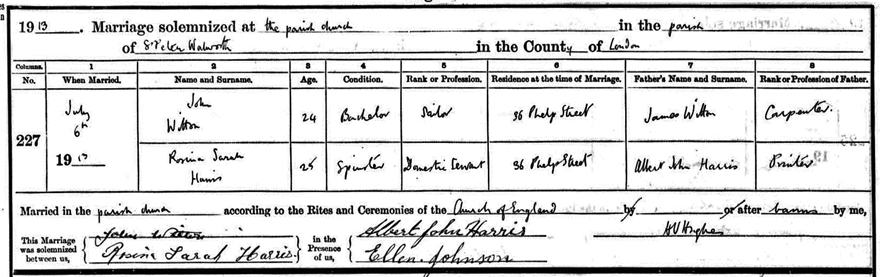 1913. Marriage solemnized at the parish church in the parish
of St Peter Walworth in the County of London
Columns. 1 2 3 4 5 6 7 8
No. When Married. Name and Surname. Age. Condition. Rank or Profession. Residence at the time of Marriage. Father's Name and Surname. Rank or Profession of Father.
227 July 6th 1913
John Witton 24 Bachelor Sailor 36 Phelp Street James Witton Carpenter.
Rosina Sarah Harris 25 Spinster Domestic Servant 36 Phelp Street Albert John Harris Printer
Married in the parish church according to the Rites and Ceremonies of the Church of England by or after banns by me,
This Marriage was solemnized between us, John Witton Rosina Sarah Harris. in the Presence of us, Albert John Harris Ellen Johnson
H V Hughes